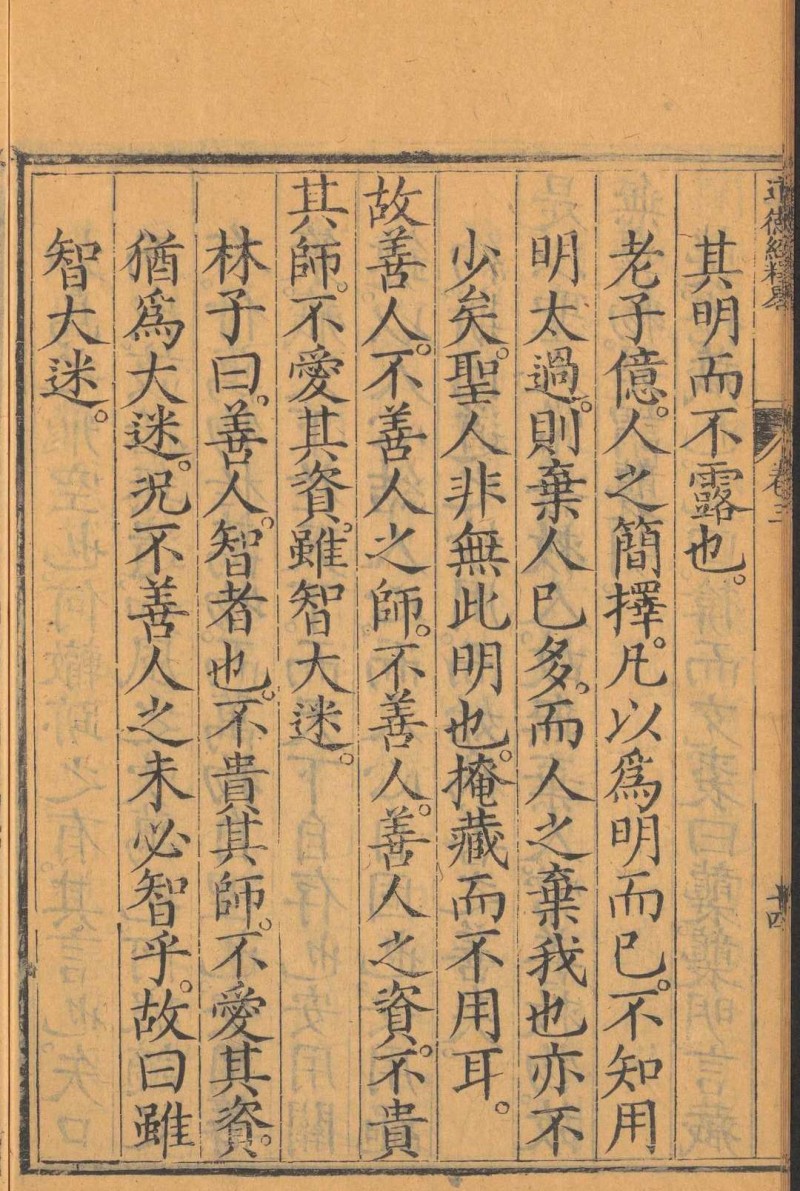 道德經釋畧
卷三
十四
其明而不露也。
老子億。人之簡擇。凡以爲明而已。不知用
明太過。則棄人已多。而人之棄我也亦不
少矣。聖人非無此明也。掩藏而不用耳。
故善人。不善人之師。不善人。善人之資。不貴
其師。不愛其資。雖智大迷。
林子曰。善人。智者也。不貴其師。不愛其資。
猶爲大迷。况不善人之未必智乎。故曰雖
智大迷。